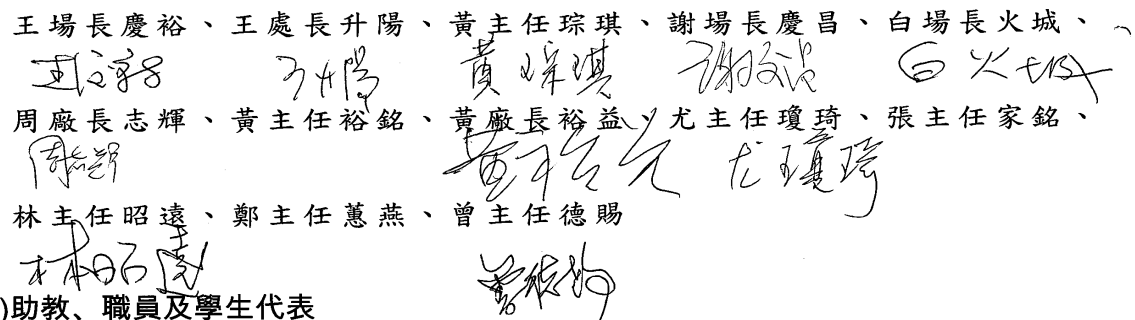 王場長慶裕、王處長升陽、黃主任琮琪、謝場長慶昌、白場長火城、
王慶裕 王升陽 黃琮琪 謝慶昌 白火城
周廠長志輝、黃主任裕銘、黃廠長裕益、尤主任瓊琦、張主任家銘、
周志輝 黃裕益 尤瓊琦
林主任昭遠、鄭主任蕙燕、曾主任德賜
林昭遠 曾德賜
)助教、職員及學生代表